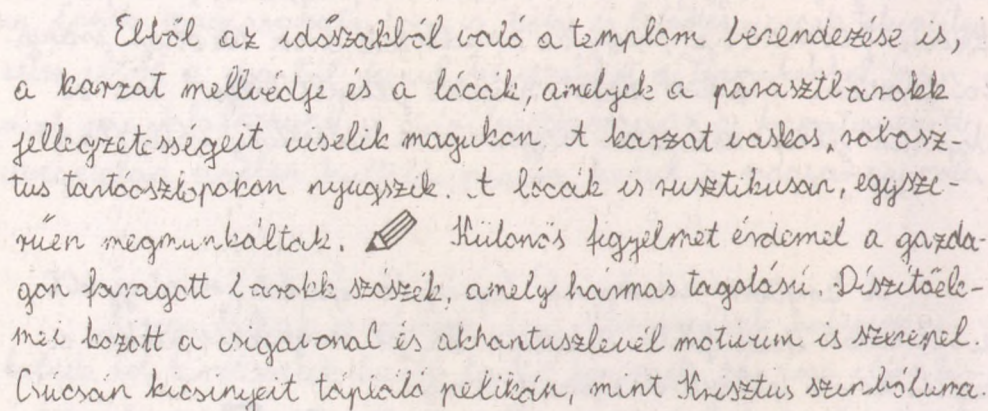 Ebből az időszakból való a templom berendezése is,
a karzat mellvédje és a lócák, amelyek a parasztbarokk
jellegzetességeit viselik magukon. A karzat vaskos, robosz-
tus tartóoszlopokon nyugszik. A lócák is rusztikusan, egysze-
rűen megmunkáltak. Különös figyelmet érdemel a gazda-
gon faragott barokk szószék, amely hármas tagolású. Díszítőele-
mei között a csigavonal és akhantuszlevél motívum is szerepel.
Csúcsán kicsinyeit tápláló pelikán, mint Krisztus szimbóluma.